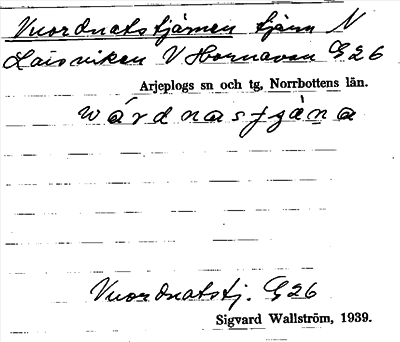 Vuordnatstjärnen tjärn N
Laisviken V Hornavan G26
Arjeplogs sn och tg, Norrbottens län.
wárdnastjäṇa
Vuordnatstj. G26
Sigvard Wallström, 1939.